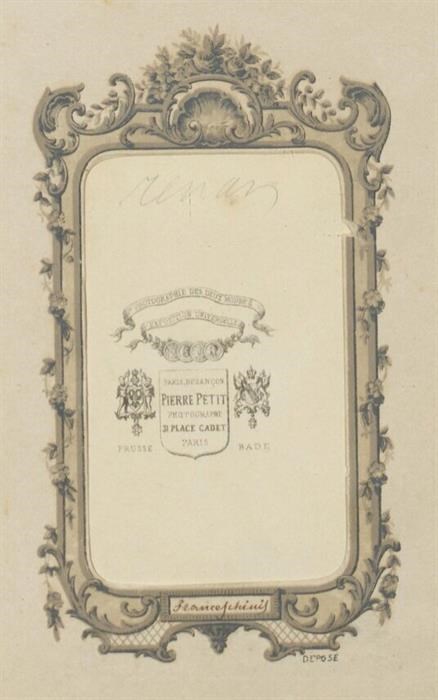 renan
PHOTOGRAPHIE DES DEUX MONDES
EXPOSITION UNIVERSELLE
PARIS, BESANÇON
PIERRE PETIT
PHOTOGRAPHE
31 PLACE CADET
PARIS
PRUSSE
BADE
Franceschinis
DÉPOSÉ